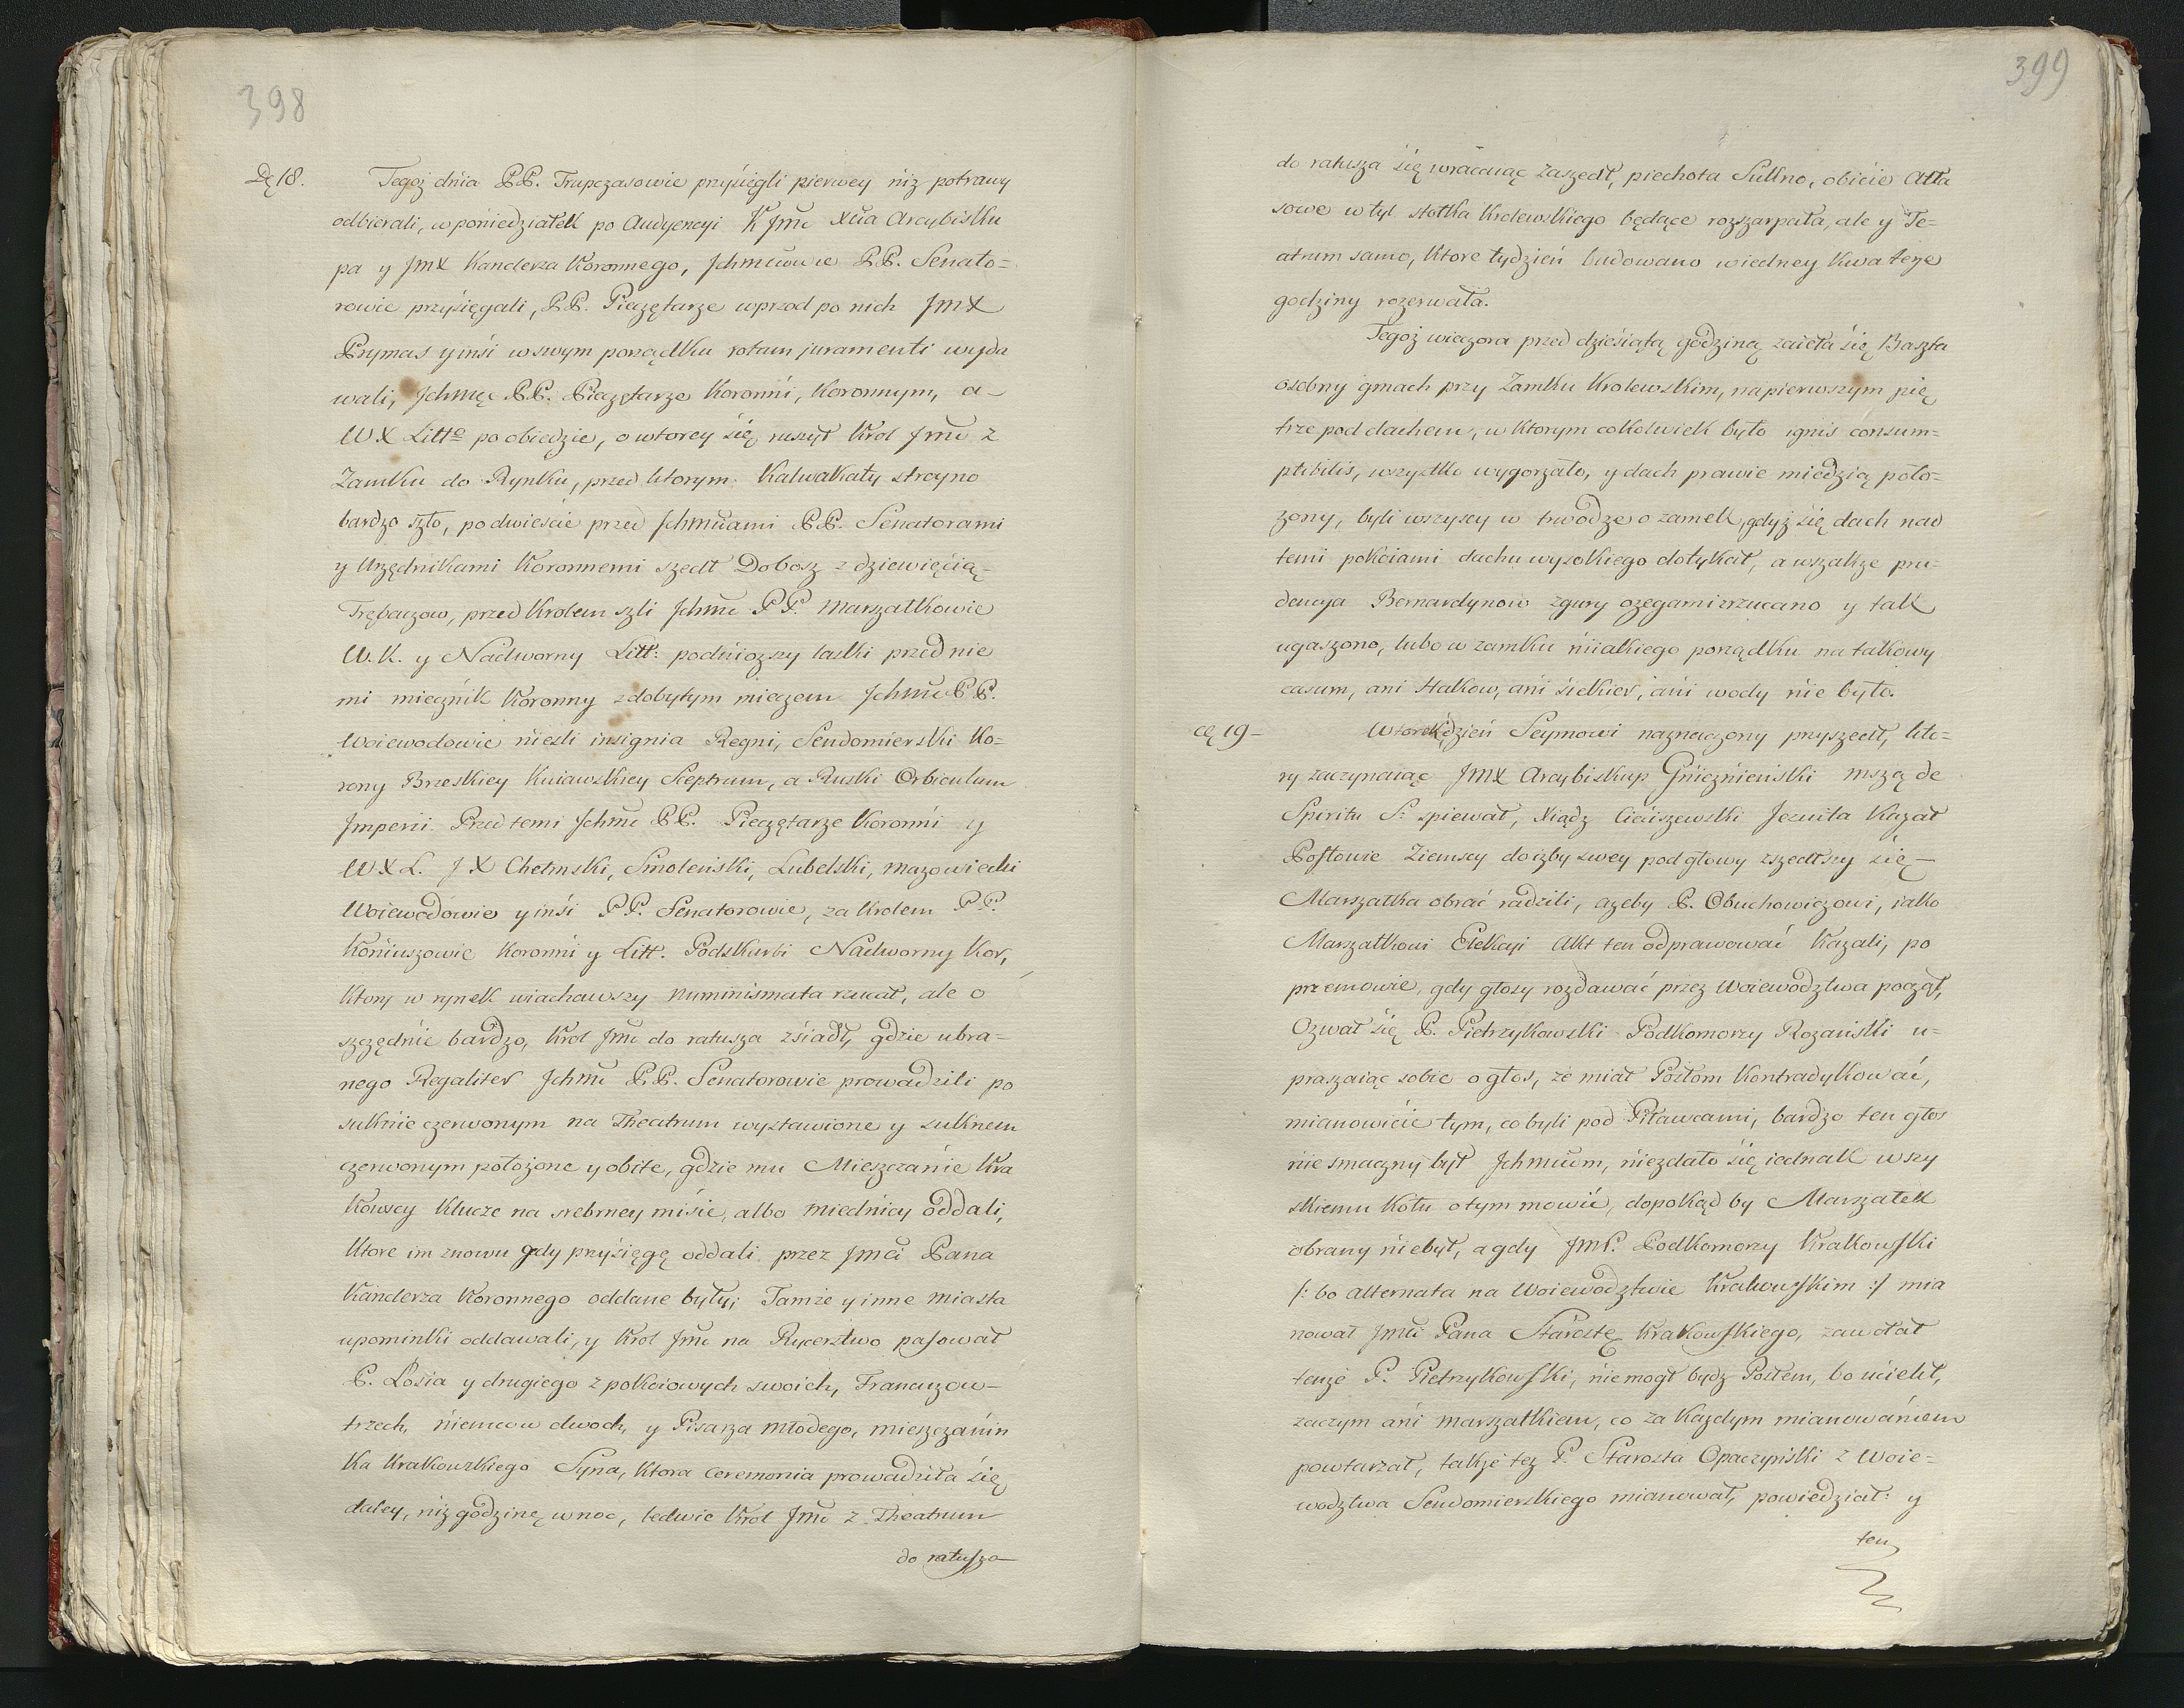 398
Dę 18. Tegoż dnia PP. Trupczasowie przysięgli pierwey niż potrawy
odbierali, w poniedziałek po Audyencyi K Jmc Xcia Arcybisku
pa y JmX Kanclerza Koronnego, Jchmcowie PP. Senato=
rowie przysięgali, PP. Pieczętarze wprzod po nich JmX
Prymas y insi w swym porządku rotam juramenti wyda
wali, Jchmcę PP. Pieczętarze Koronni, Koronnym, a
WX Litto po obiedzie, o wtorey się ruszył Krol Jmc z
Zamku do Rynku, przed ktorym Kalwakaty stroyno
bardzo szło, po dwieście przed Jchmciami PP. Senatorami
y Urzędnikami Koronnemi szedł Dobosz z dziewięcią
Trębaczow, przed Krolem szli Jchmc PP. Marszałkowie
W. K. y Nadworny Litt: podniozszy laski przed nie
mi miecznik Koronny z dobytym mieczem Jchmc PP.
Woiewodowie niesli insignia Regni, Sendomierski Ko=
rony Brzeskiey Kuiawskiey Sceptrum, a Ruski Orbiculum
Jmperii. Przed temi Jchmc PP. Pieczętarze Koronni y
WXL. JX Chełmski, Smoleński, Lubelski, Mazowiecki
Woiewodowie y inśi PP. Senatorowie, za Krolem PP.
Koniuszowie Koronni y Litt. Podskarbi Nadworny Kor,
Ktory w rynek wiachawszy numinismata rzucał, ale o
szczędnie bardzo, Krol Jmc do ratusza zsiadł, gdzie ubra=
nego Regaliter Jchmc PP. Senatorowie prowadzili po
suknie czerwonym na Theatrum wystawione y suknem
czerwonym położone y obite, gdzie mu Mieszczanie Kra
Kowscy Klucze na srebrney misie, albo miednicy oddali,
Ktore im znowu gdy przysięgę oddali przez Jmci Pana
Kanclerza Koronnego oddane były; Tamże y inne miasta
upominki oddawali, y Krol Jmc na Rycerstwo pasował
P. Łosia y drugiego z pokoiowych swoich, Francuzow
trzech, niemcow dwoch, y Pisarza młodego, mieszczanin
Ka Krakowskiego Syna, Ktora ceremonia prowadziła się
daley, niż godzinę w noc, ledwie Krol Jmc z Theatrum
do ratusza
399
do ratusza się wracaiąc zaszedł, piechota Sukno, obicie Atła
sowe w tyl stołka Krolewskiego będące rozszarpała, ale y Te=
atrum samo, Ktore tydzień budowano w iedney Kwaterze
godziny rozerwała.
Tegoż wieczora przed dziesiątą godziną zaięła się Baszta
osobny gmach przy Zamku Krolewskim, na pierwszym pię
trze pod dachem, w Ktorym cokolwiek było ignis consum=
ptibilis, wszystko wygorzało, y dach prawie miedzią poło=
zony, byli wszyscy w trwodze o zamek, gdyż się dach nad
temi pokoiami dachu wysokiego dotykał, a wszakże pru=
dencya Bernardynow zgury ozegami zrzucano y tak
ugaszono, lubo w zamku niiakiego porządku na takowy
casum, ani Hakow, ani siekier, ani wody nie było.
cę 19 Wtorek dzień Seymowi naznaczony przyszedł, kto=
ry zaczynaiąc JMX Arcybiskup Gnieznienski mszą de
Spiritu S: spiewał, Xiądz Ciciszewski Jezuita Kazał
Posłowie Ziemscy do izby swey pod głowy zszedłszy się
Marszałka obrać radzili, azeby P. Obuchowiczowi, iako
Marszałkowi Elekcyi Akt ten odprawować Kazali, po
przemowie, gdy głosy rozdawać przez Woiewodztwa począł,
Ozwał się P. Pietrzykowski Podkomorzy Rozański u=
praszaiąc sobie o głos, że miał Posłom Kontradykować,
mianowicie tym, co byli pod Piławcami, bardzo ten głos
niesmaczny był Jchmciom, niezdało się iednak wszy
stkiemu Kołu o tym mowić, dopokąd by Marszałek
obrany nie był, a gdy JmP. Podkomorzy Krakowski
/: bo alternata na Woiewodztwie Krakowskim :/ mia
nował Jmci Pana Starostę Krakowskiego, zawołał
tenże P. Pietrzykowski, nie mogł bydz Posłem, bo uciekł,
zaczym ani marszałkiem, co za Kazdym mianowaniem
powtarzał, takze tez P. Starosta Opoczyński z Woie=
wodztwa Sendomierskiego mianował, powiedział: y
ten